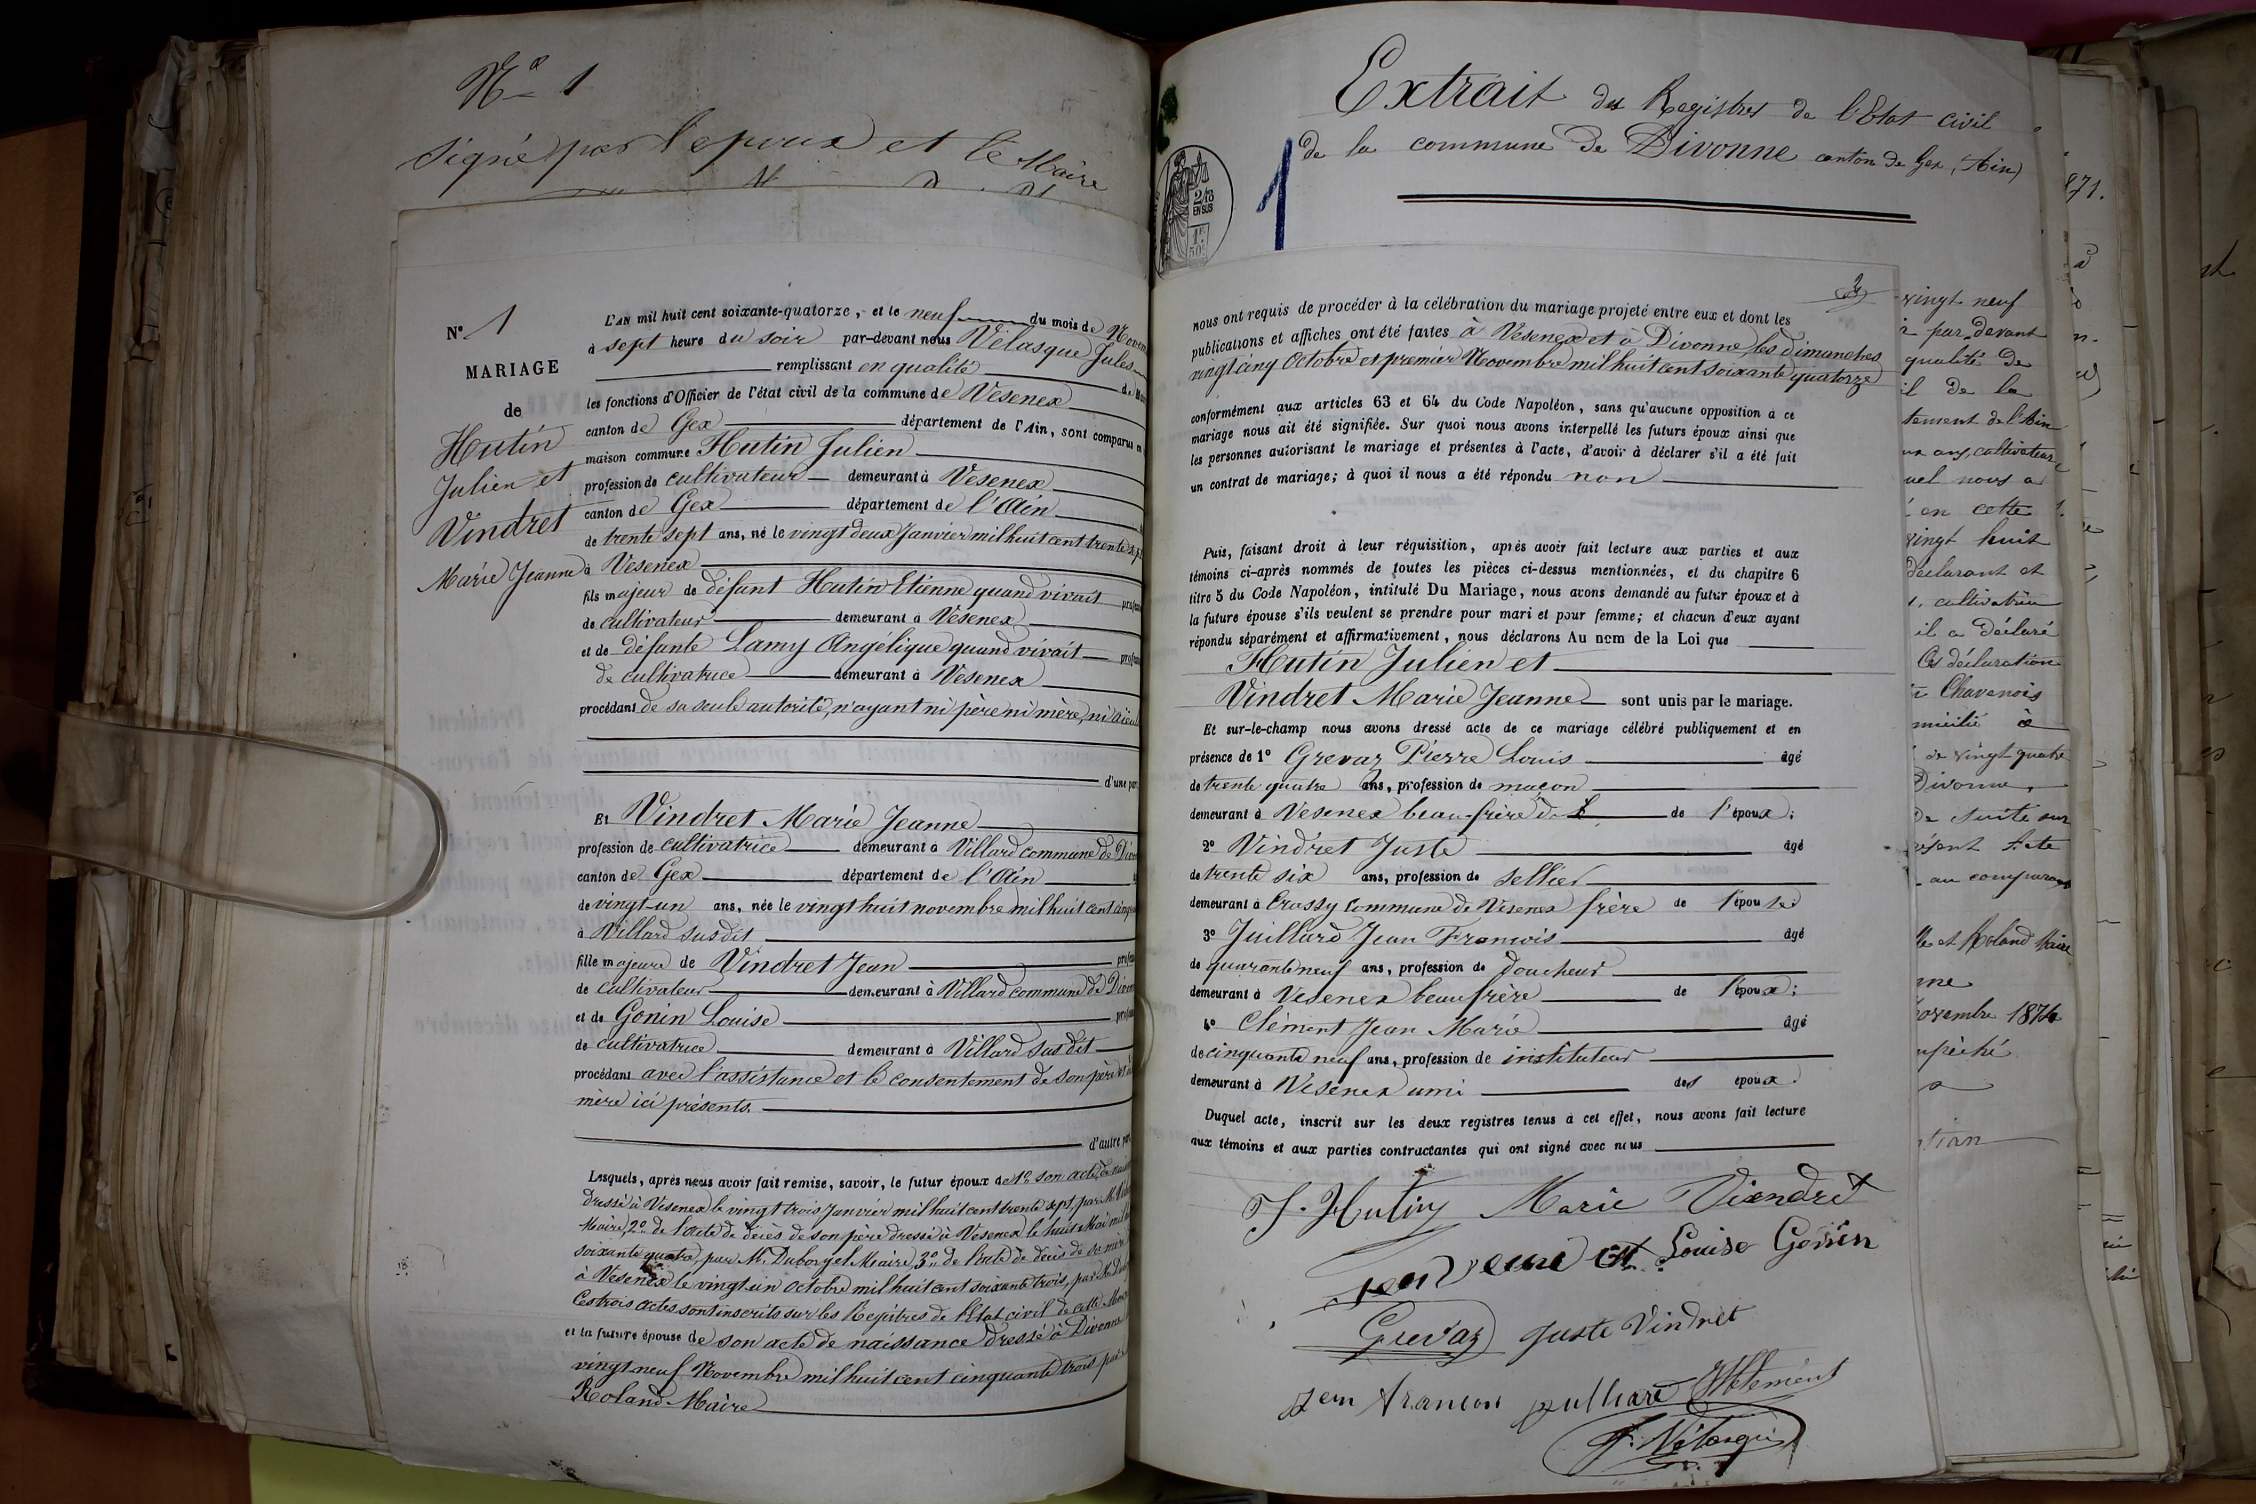 Nº 1
signé par l'epoux et le Maire
Nº 1
MARIAGE
de
Hutin
Julien et
Vindret
Marie Jeanne
L'AN mil huit cent soixante-quatorze, et le neuf du mois de Novem
à sept heure du soir par-devant nous Vélasque Jules
remplissant en qualité de
les fonctions d'Officier de l'état civil de la commune de Vesenex
canton de Gex département de l'Ain, sont comparus en
maison commune Hutin Julien
profession de cultivateur demeurant à Vesenex
canton de Gex département de l'Ain
de trente sept ans, né le vingt deux Janvier mil huit cent trente sept
à Vesenex
fils majeur de défunt Hutin Etienne quand vivait
de cultivateur demeurant à Vesenex
et de défunte Lamy Angélique quand vivait
de cultivatrice demeurant à Vesenex
procédant de sa seule autorité, n'ayant ni père ni mère, ni aïeul
d'une part
Et Vindret Marie Jeanne
profession de cultivatrice demeurant à Villard commune de Divo
canton de Gex département de l'Ain
de vingt-un ans, née le vingt huit novembre mil huit cent cinqu
à Villard susdit
fille majeure de Vindret Jean
de cultivateur demeurant à Villard commune de Divon
et de Gonin Louise
de cultivatrice demeurant à Villard susdit
procédant avec l'assistance et le consentement de son père et
mère ici présents.
d'autre par
Lesquels, après nous avoir fait remise, savoir, le futur époux de 1º son acte de nais
dressé à Vesenex le vingt trois Janvier mil huit cent trente sept, par M.
Maire, 2º de l'acte de décès de son père dressé à Vesenex le huit Mai mil
soixante quatre, par M. Duborgel Maire, 3º de l'acte de décès de sa mère
à Vesenex le vingt un octobre mil huit cent soixante trois, par
Ces trois actes sont inscrits sur les Registres de l'Etat civil de cette
et la future épouse de son acte de naissance dressé à Divonne
vingt neuf Novembre mil huit cent cinquante trois par
Roland Maire
Extrait des Registres de l'Etat civil
de la commune de Divonne canton de Gex, (Ain)
1
2/10
EN SUS
1F
50c
nous ont requis de procéder à la célébration du mariage projeté entre eux et dont les
publications et affiches ont été faites à Vesenex et à Divonne les dimanches
vingt cinq Octobre et premier Novembre mil huit cent soixante quatorze
conformément aux articles 63 et 64 du Code Napoléon, sans qu'aucune opposition à ce
mariage nous ait été signifiée. Sur quoi nous avons interpellé les futurs époux ainsi que
les personnes autorisant le mariage et présentes à l'acte, d'avoir à déclarer s'il a été fait
un contrat de mariage; à quoi il nous a été répondu non
Puis, faisant droit à leur réquisition, après avoir fait lecture aux parties et aux
témoins ci-après nommés de toutes les pièces ci-dessus mentionnées, et du chapitre 6
titre 5 du Code Napoléon, intitulé Du Mariage, nous avons demandé au futur époux et à
la future épouse s'ils veulent se prendre pour mari et pour femme; et chacun d'eux ayant
répondu séparément et affirmativement, nous déclarons Au nom de la Loi que
Hutin Julien et
Vindret Marie Jeanne sont unis par le mariage.
Et sur-le-champ nous avons dressé acte de ce mariage célébré publiquement et en
présence de 1º Grevaz Pierre Louis âgé
de trente quatre ans, profession de maçon
demeurant à Vesenex beau-frère de l'époux;
2º Vindret Juste âgé
de trente six ans, profession de sellier
demeurant à Crassy commune de Vesenex frère de l'épouse
3º Juillard Jean François âgé
de quarante neuf ans, profession de doucheur
demeurant à Vesenex beau frère de l'époux;
4º Clément Jean Marie âgé
de cinquante neuf ans, profession de instituteur
demeurant à Vesenex ami des époux.
Duquel acte, inscrit sur les deux registres tenus à cet effet, nous avons fait lecture
aux témoins et aux parties contractantes qui ont signé avec nous
J. Hutin Marie Viendret
Louise Gonin
Grevaz Juste Vindret
Clément
871.
vingt neuf
par-devant
qualité de
il de la
tement de l'Ain
ans, cultivateur
uel nous a
en cette
vingt huit
déclarant et
cultivatrice
il a déclaré
Ces déclaration
Chavanois
micilié à
de vingt quatre
Divonne,
De suite sur
ésent Acte
au comparant
et Roland Maire
nne
ovembre 1874
mpêché